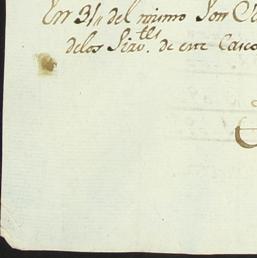 En 3// del mismo Son C
delos Sirv.tes de este Casco